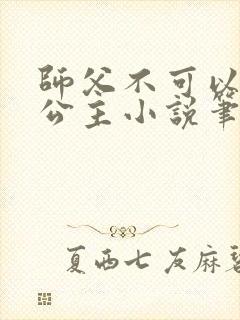 師父不可以
公主小說筆
夏西七友麻